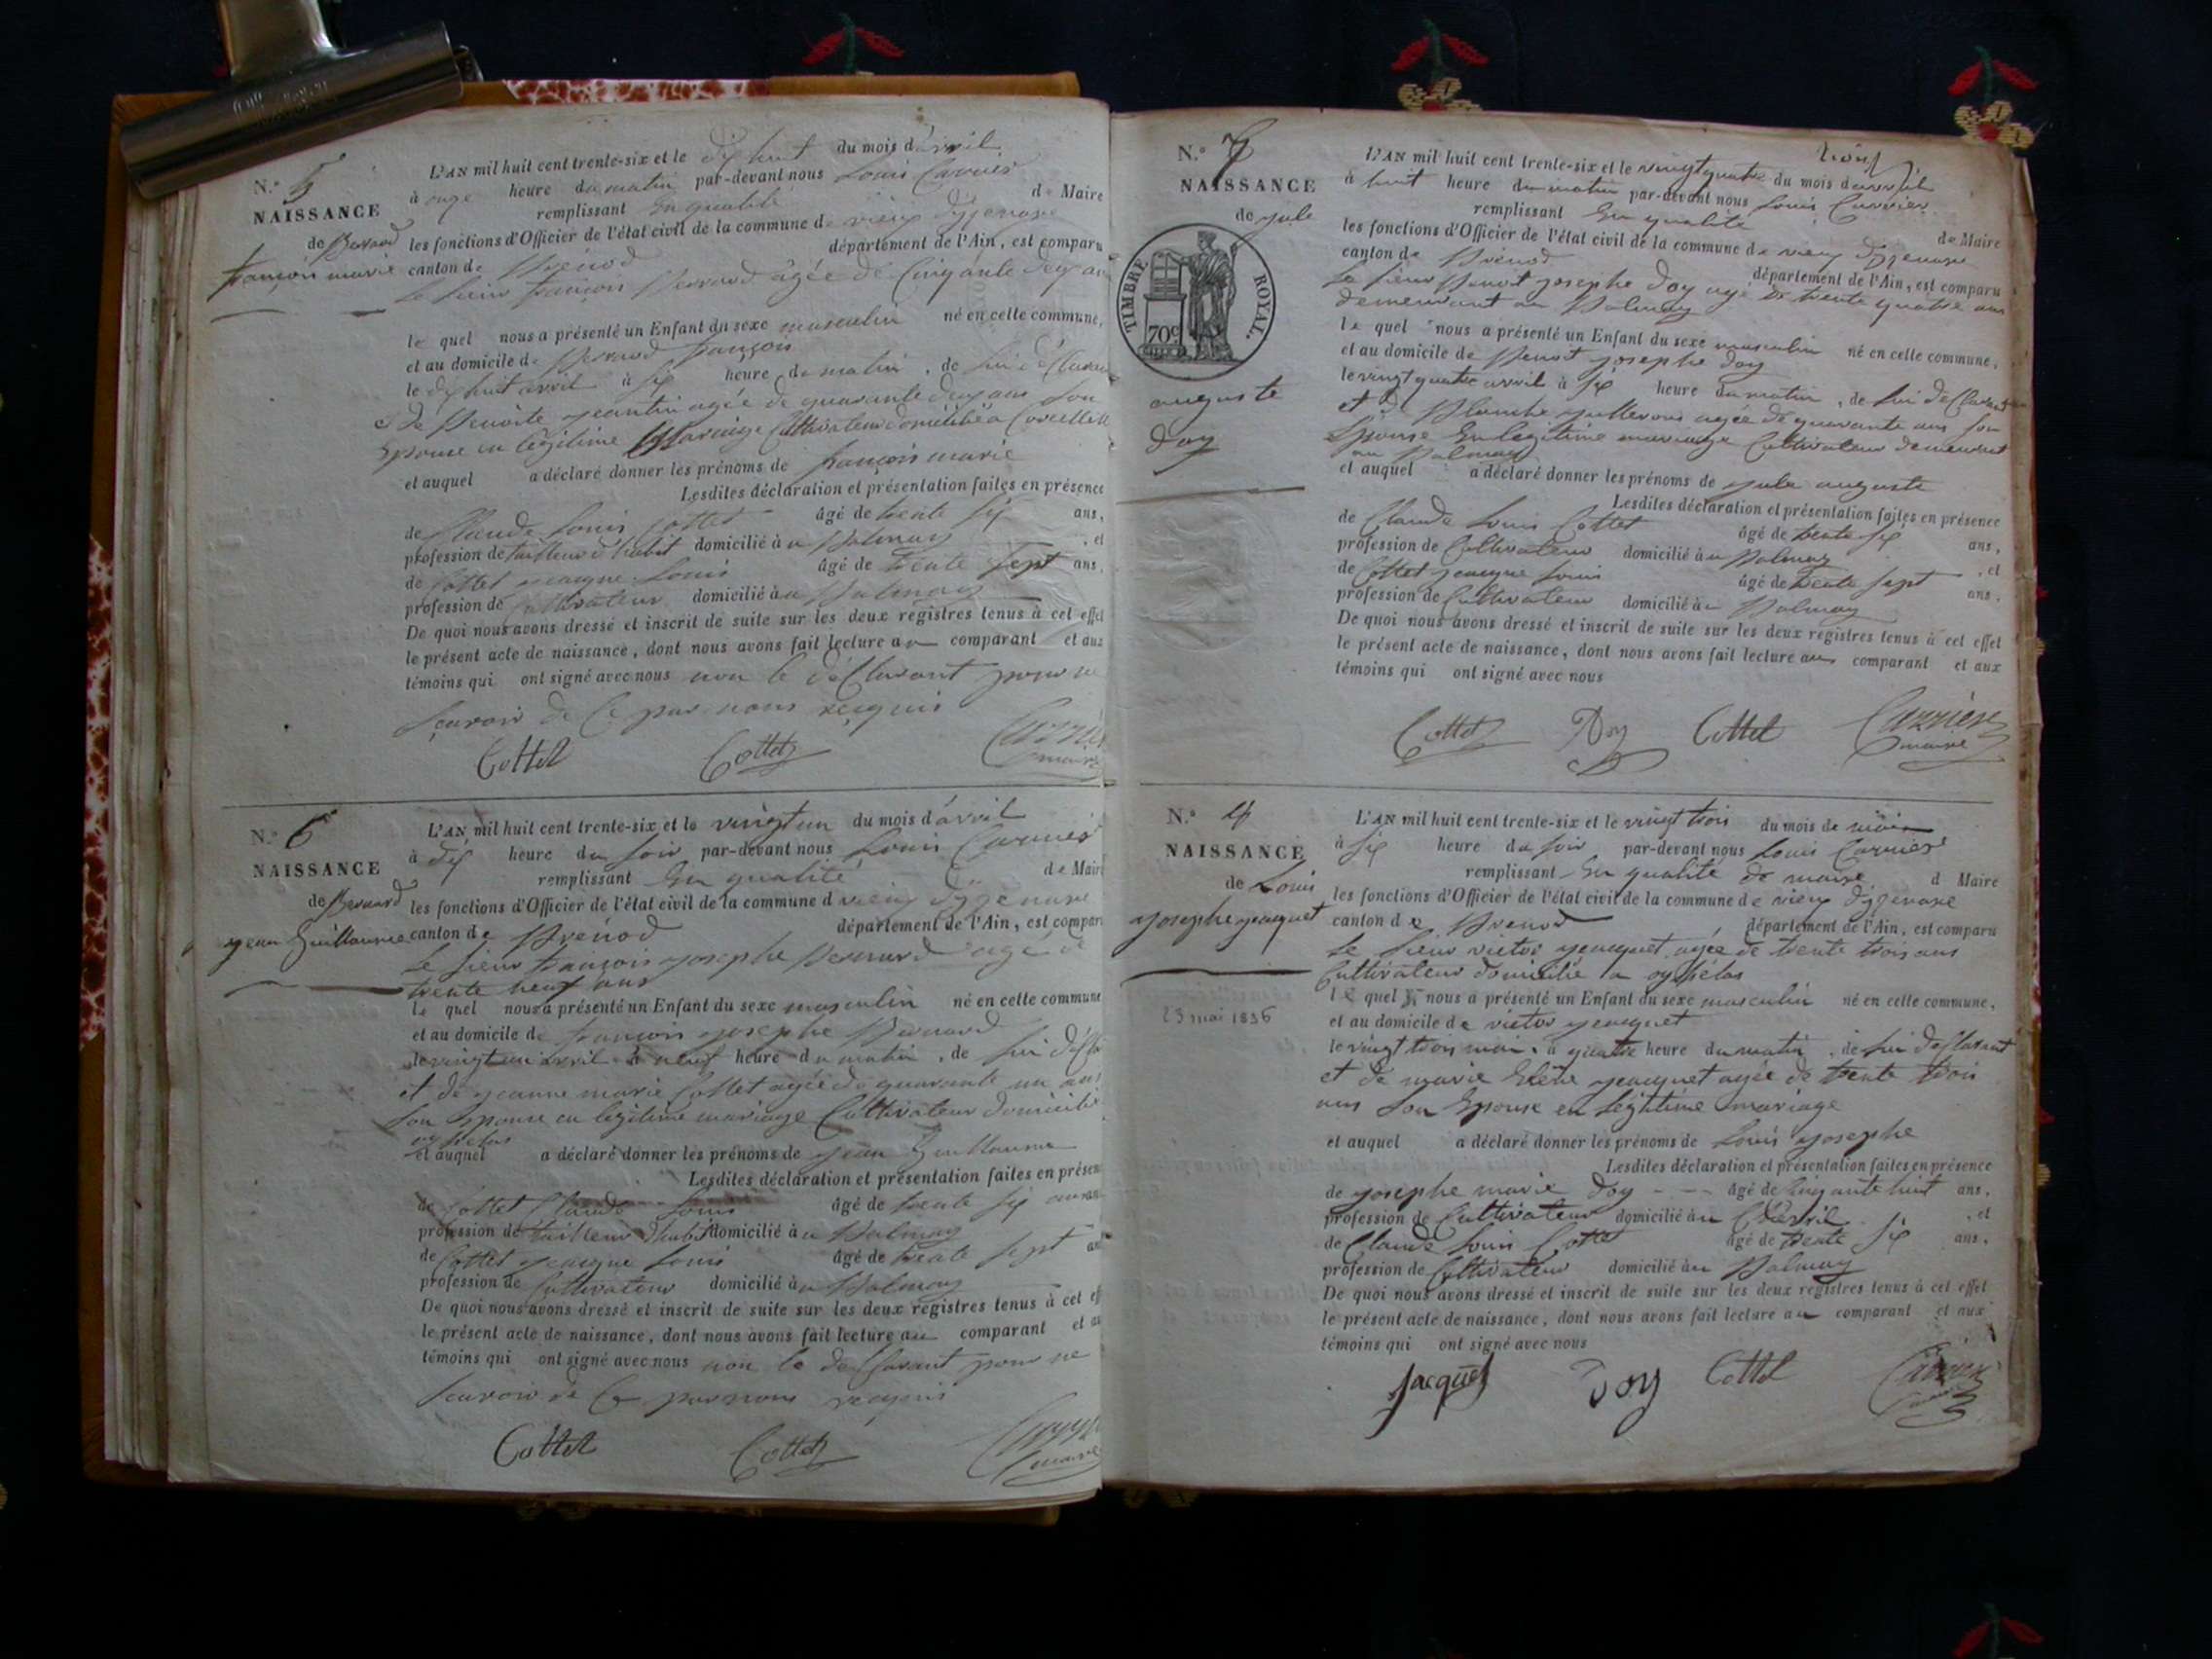 N.° 5
NAISSANCE
de Bernard
françois marie
L'AN mil huit cent trente-six et le dix huit du mois d'avril
à onze heure du matin par-devant nous Louis Carrier
remplissant En qualité de Maire
les fonctions d'Officier de l'état civil de la commune de vieux d'izenave
canton de Brénod département de l'Ain, est comparu
le sieur françois Bernard âgée de Cinquante deux ans
le quel nous a présenté un Enfant du sexe masculin né en cette commune,
et au domicile de Bernard françois
le dix huit avril à six heure du matin, de lui déclarant
et de Benoite jeantin agée de quarante deux ans son
Epouse en légitime Mariage Cultivateur domicilié a Corcelle
et auquel a déclaré donner les prénoms de françois marie
Lesdites déclaration et présentation faites en présence
de Claude Louis Cottet âgé de trente six ans,
profession de tailleur d'habit domicilié à u Balmay, et
de Cottet jeacque Louis âgé de trente sept ans,
profession de Cultivateur domicilié à u Balmay
De quoi nous avons dressé et inscrit de suite sur les deux registres tenus à cet effet
le présent acte de naissance, dont nous avons fait lecture au comparant et aux
témoins qui ont signé avec nous non le déclarant pour ne
sçavoir de Ce par nous requis
Cottet Cottet Carrier
maire
N.° 6
NAISSANCE
de Bernard
jean Guillaume
L'AN mil huit cent trente-six et le vingt un du mois d'avril
à dix heure du soir par-devant nous Louis Carrier
remplissant En qualité de Maire
les fonctions d'Officier de l'état civil de la commune d vieux d'izenave
canton de Brénod département de l'Ain, est comparu
le sieur françois josephe Bernard agé de
trente neuf ans
le quel nous a présenté un Enfant du sexe masculin né en cette commune
et au domicile de françois josephe Bernard
le vingt un avril à neuf heure du matin, de lui décla
et de jeanne marie Cottet agée de quarante un ans
son Epouse en légitime mariage Cultivateur domicilié
et auquel a déclaré donner les prénoms de jean Guillaume
Lesdites déclaration et présentation faites en présen
de Cottet Claude Louis âgé de trente six ans
profession de tailleur d'habit domicilié à u Balmay
de Cottet jeacque Louis âgé de trente sept an
profession de Cultivateur domicilié à u Balmay
De quoi nous avons dressé et inscrit de suite sur les deux registres tenus à cet eff
le présent acte de naissance, dont nous avons fait lecture au comparant et au
témoins qui ont signé avec nous non le déclarant pour ne
sçavoir de Ce par nous requis
Cottet Cottet Carrier
maire
N.° 7
NAISSANCE
de jule
TIMBRE ROYAL.
70c
auguste
Doy
L'AN mil huit cent trente-six et le vingt quatre du mois d'avril
à huit heure du matin par-devant nous Louis Carrier
remplissant En qualité de Maire
les fonctions d'Officier de l'état civil de la commune de vieux d'izenave
canton de Brénod département de l'Ain, est comparu
le sieur Benoit josephe Doy agé de trente quatre ans
demeurant au Balmay
le quel nous a présenté un Enfant du sexe masculin né en cette commune,
et au domicile de Benoit josephe Doy
le vingt quatre avril à six heure du matin, de lui déclarant
et de Blanche agée de quarante ans son
Epouse En legitime mariage Cultivateur demeurant
au Balmay
et auquel a déclaré donner les prénoms de jule auguste
Lesdites déclaration et présentation faites en présence
de Claude Louis Cottet âgé de trente six ans,
profession de Cultivateur domicilié à u Balmay, et
de Cottet jeacque Louis âgé de trente sept ans,
profession de Cultivateur domicilié à u Balmay
De quoi nous avons dressé et inscrit de suite sur les deux registres tenus à cet effet
le présent acte de naissance, dont nous avons fait lecture au comparant et aux
témoins qui ont signé avec nous
Cottet Doy Cottet Carrier
maire
N.°
NAISSANCE
de Louis
josephe jeacquet
23 mai 1836
L'AN mil huit cent trente-six et le vingt trois du mois de mai
à six heure du soir par-devant nous Louis Carrier
remplissant En qualité de maire d Maire
les fonctions d'Officier de l'état civil de la commune de vieux d'izenave
canton de Brenod département de l'Ain, est comparu
le sieur victor jeacquet agée de trente trois ans
Cultivateur domicilié a
le quel nous a présenté un Enfant du sexe masculin né en cette commune,
et au domicile de victor jeacquet
le vingt trois mai à quatre heure du matin, de lui déclarant
et de marie jeacquet agée de trente trois
ans son Epouse en légitime mariage
et auquel a déclaré donner les prénoms de Louis josephe
Lesdites déclaration et présentation faites en présence
de josephe marie Doy âgé de Cinquante huit ans,
profession de Cultivateur domicilié à u Chevril, et
de Claude Louis Cottet âgé de trente six ans,
profession de Cultivateur domicilié à u Balmay
De quoi nous avons dressé et inscrit de suite sur les deux registres tenus à cet effet
le présent acte de naissance, dont nous avons fait lecture au comparant et aux
témoins qui ont signé avec nous
Jacquet Doy Cottet Carrier